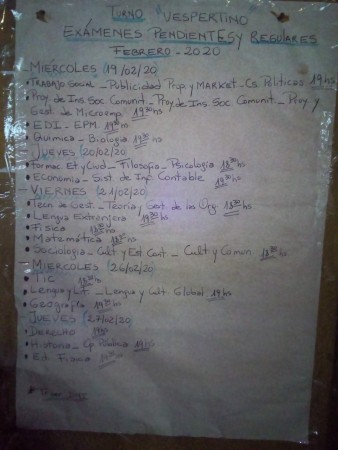 TURNO VESPERTINO
EXÁMENES PENDIENTES y REGULARES
FEBRERO - 2020
MIÉRCOLES (19/02/20)
• TRABAJO SOCIAL - Publicidad Prop. y MARKET - Cs. Políticas 19 hs
• Proy. de Ins Soc Comunit - Proy. de Ins. Soc Comunit - Proy y
Gest. de Microemp. 19:30 hs
• EDI - EPM 19:30 hs
• Química - Biología 19:30 hs
JUEVES (20/02/20)
• Formac Et y Ciud - Filosofía - Psicología 18:30 hs
• Economía - Sist. de Inf. Contable 19:30 hs
- VIERNES (21/02/20)
• Tecn de Gest. - Teoría y Gest. de las Org. 18:30 hs
• Lengua Extranjera 19:30 hs
• Física 18:30 hs
• Matemática
• Sociología - Cult y Est Cont - Cult y Comun 18:30 hs
- MIERCOLES (26/02/20)
• TIC 18:30 hs
• Lengua y Lit. - Lengua y Cult. Global 19 hs
• Geografía 19:30 hs
JUEVES (27/02/20)
• DERECHO 19 hs
• Historia - Op. 19 hs
• Ed. Física